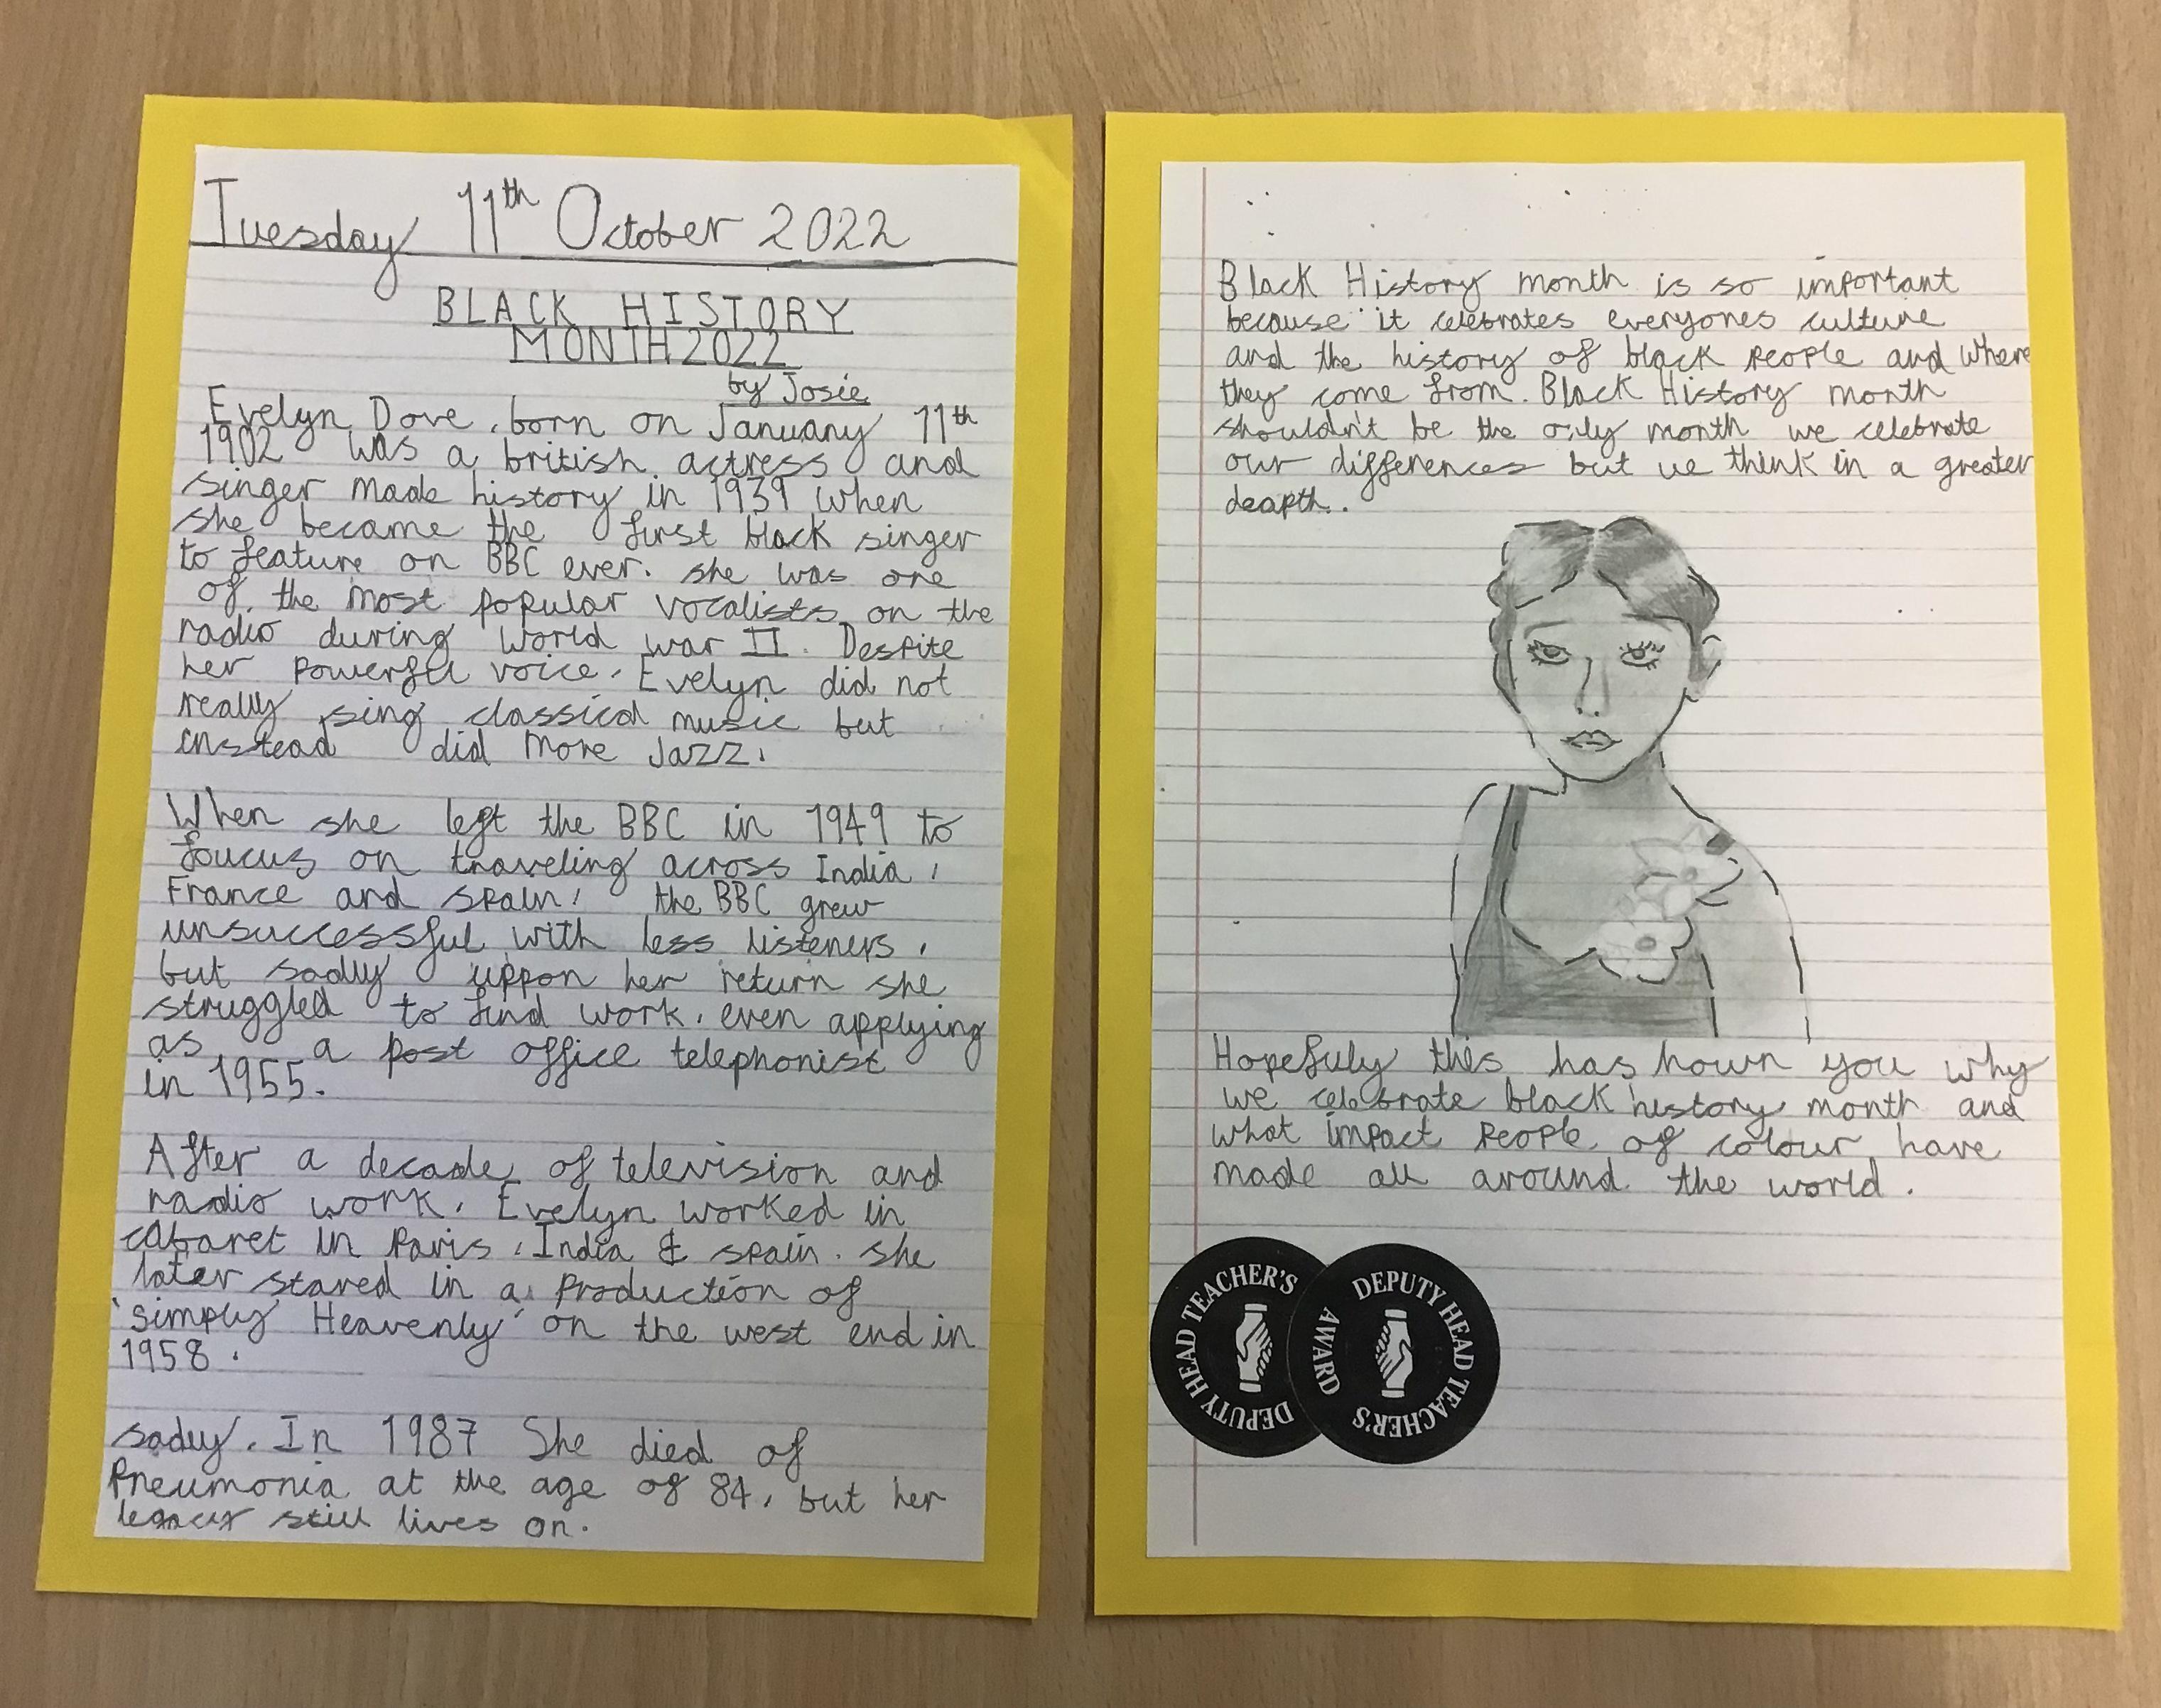 Tuesday 11th October 2022
BLACK HISTORY
MONTH 2022
by Josie
Evelyn Dove, born on January 11th
1902 was a british actress and
singer made history in 1939 when
she became the first black singer
to feature on BBC ever. she was one
of the most popular vocalists on the
radio during world war II. Despite
her powerful voice, Evelyn did not
really sing classical music but
instead did more Jazz.
When she left the BBC in 1949 to
foucus on traveling across India,
France and spain, the BBC grew
unsuccessful with less listeners,
but sadly uppon her return she
struggled to find work, even applying
as a post office telephonist
in 1955.
After a decade of television and
radio work, Evelyn worked in
cabaret in Paris, India & spain. she
later stared in a production of
'simply Heavenly' on the west end in
1958.
sadly, In 1987 She died of
Pneumonia at the age of 84, but her
legacy still lives on.
Black History month is so important
because it celebrates everyones culture
and the history of black people and where
they come from. Black History month
shouldn't be the only month we celebrate
our differences but we think in a greater
deapth.
Hopefuly this has hown you why
we celebrate black history month and
what impact people of colour have
made all around the world.
DEPUTY HEAD TEACHER'S
DEPUTY HEAD TEACHER'S AWARD